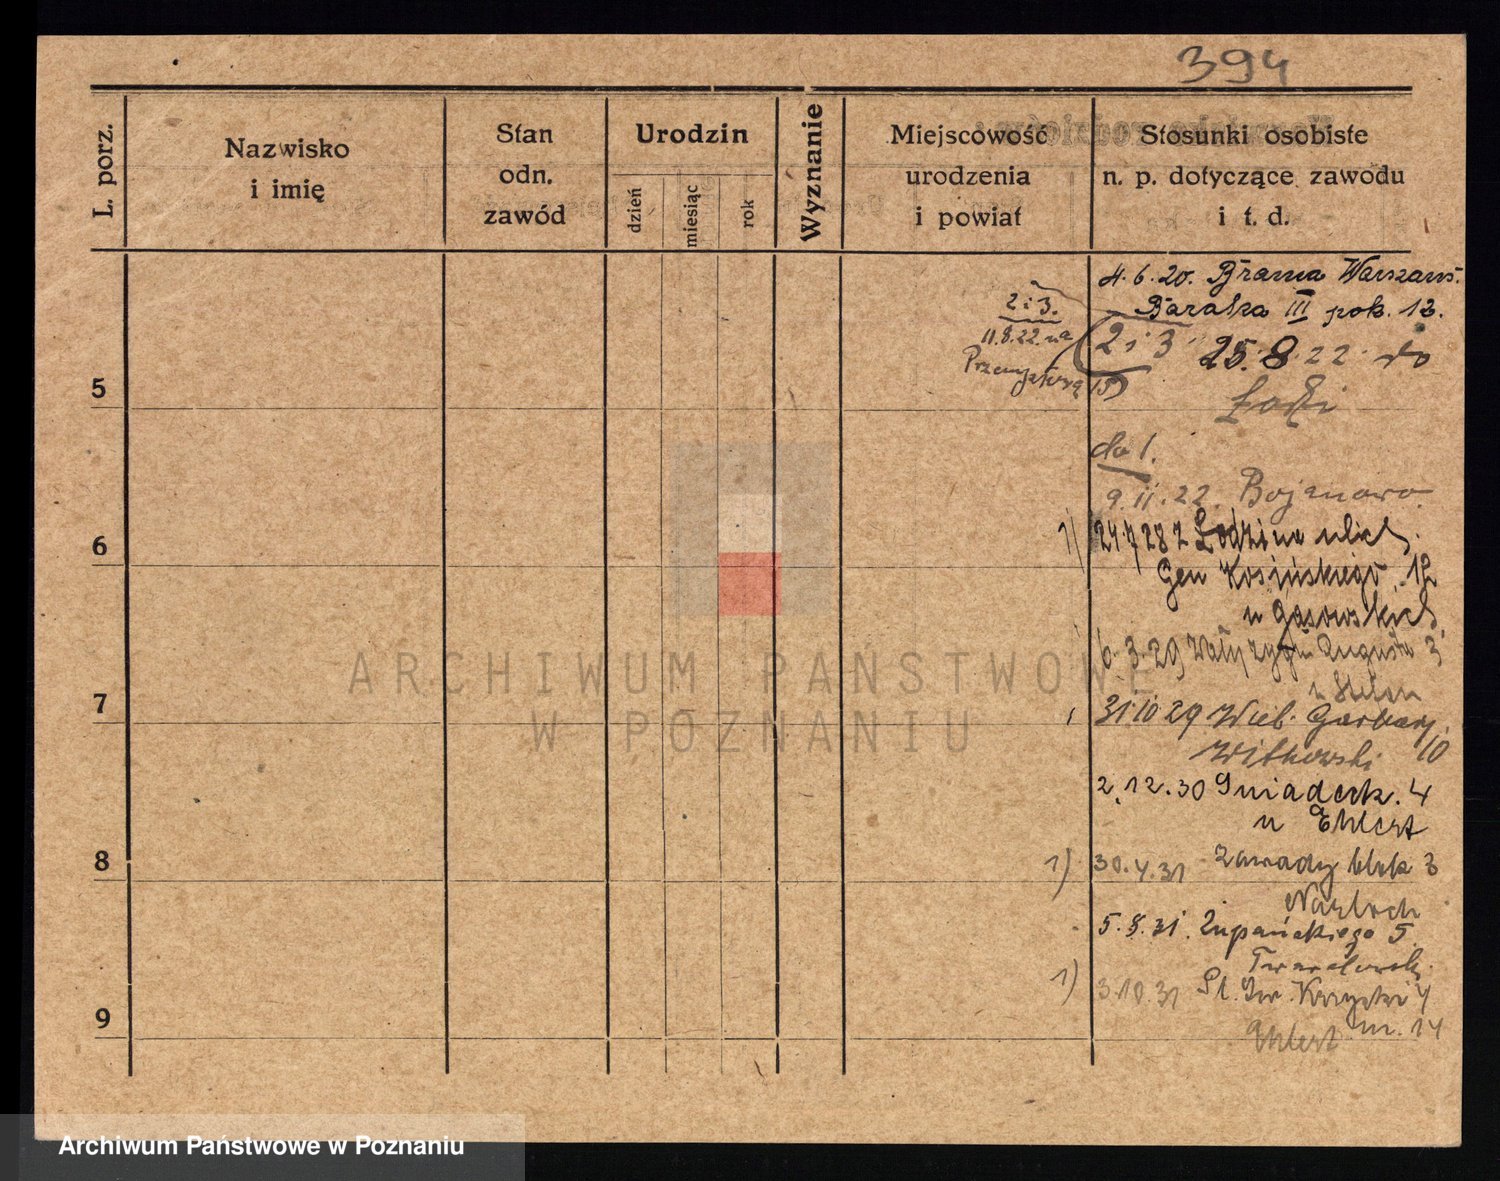 394
L. porz.
Nazwisko
i imię
Stan
odn.
zawód
Urodzin
dzień
miesiąc
rok
Wyznanie
Miejscowość
urodzenia
i powiat
Stosunki osobiste
n. p. dotyczące zawodu
i t. d.
4.6.20. Brama Warszaws.
Baraka III pok. 12.
2 i 3.
11.8.22 na
2 i 3 25.8.22 do
Łodzi
5
do 1.
9.11.22. Bojanowo
6
1) 24/7 28 z Łodzi na ulicę
Gen Kosińskiego 12
u Gąsowskich
6.3.29 Wały Zygm Augusta 3
7
31 10 29 Wieb. Garbary 10
Witkowski
2.12.30 Gniadeck. 4
u Ehlert
8
1) 30.4.31 Zawady blok 3
5.8.31. Żupańskiego 5.
1) 3.10.31 Pl. Św. Krzyski 4
m. 14
Ehlert
9
ARCHIWUM PAŃSTWOWE
W POZNANIU
Archiwum Państwowe w Poznaniu